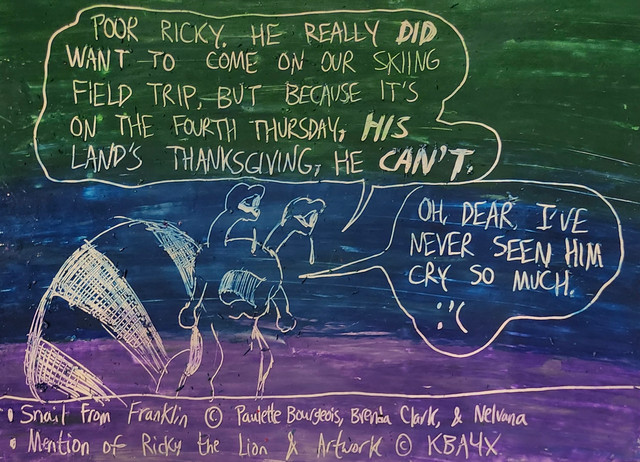 POOR RICKY. HE REALLY DID
WANT TO COME ON OUR SKIING
FIELD TRIP, BUT BECAUSE IT'S
ON THE FOURTH THURSDAY, HIS
LAND'S THANKSGIVING, HE CAN'T.
OH, DEAR. I'VE
NEVER SEEN HIM
CRY SO MUCH.
:'(
• Snail from Franklin © Paulette Bourgeois, Brenda Clark, & Nelvana
• Mention of Ricky the Lion & Artwork © KBA4X